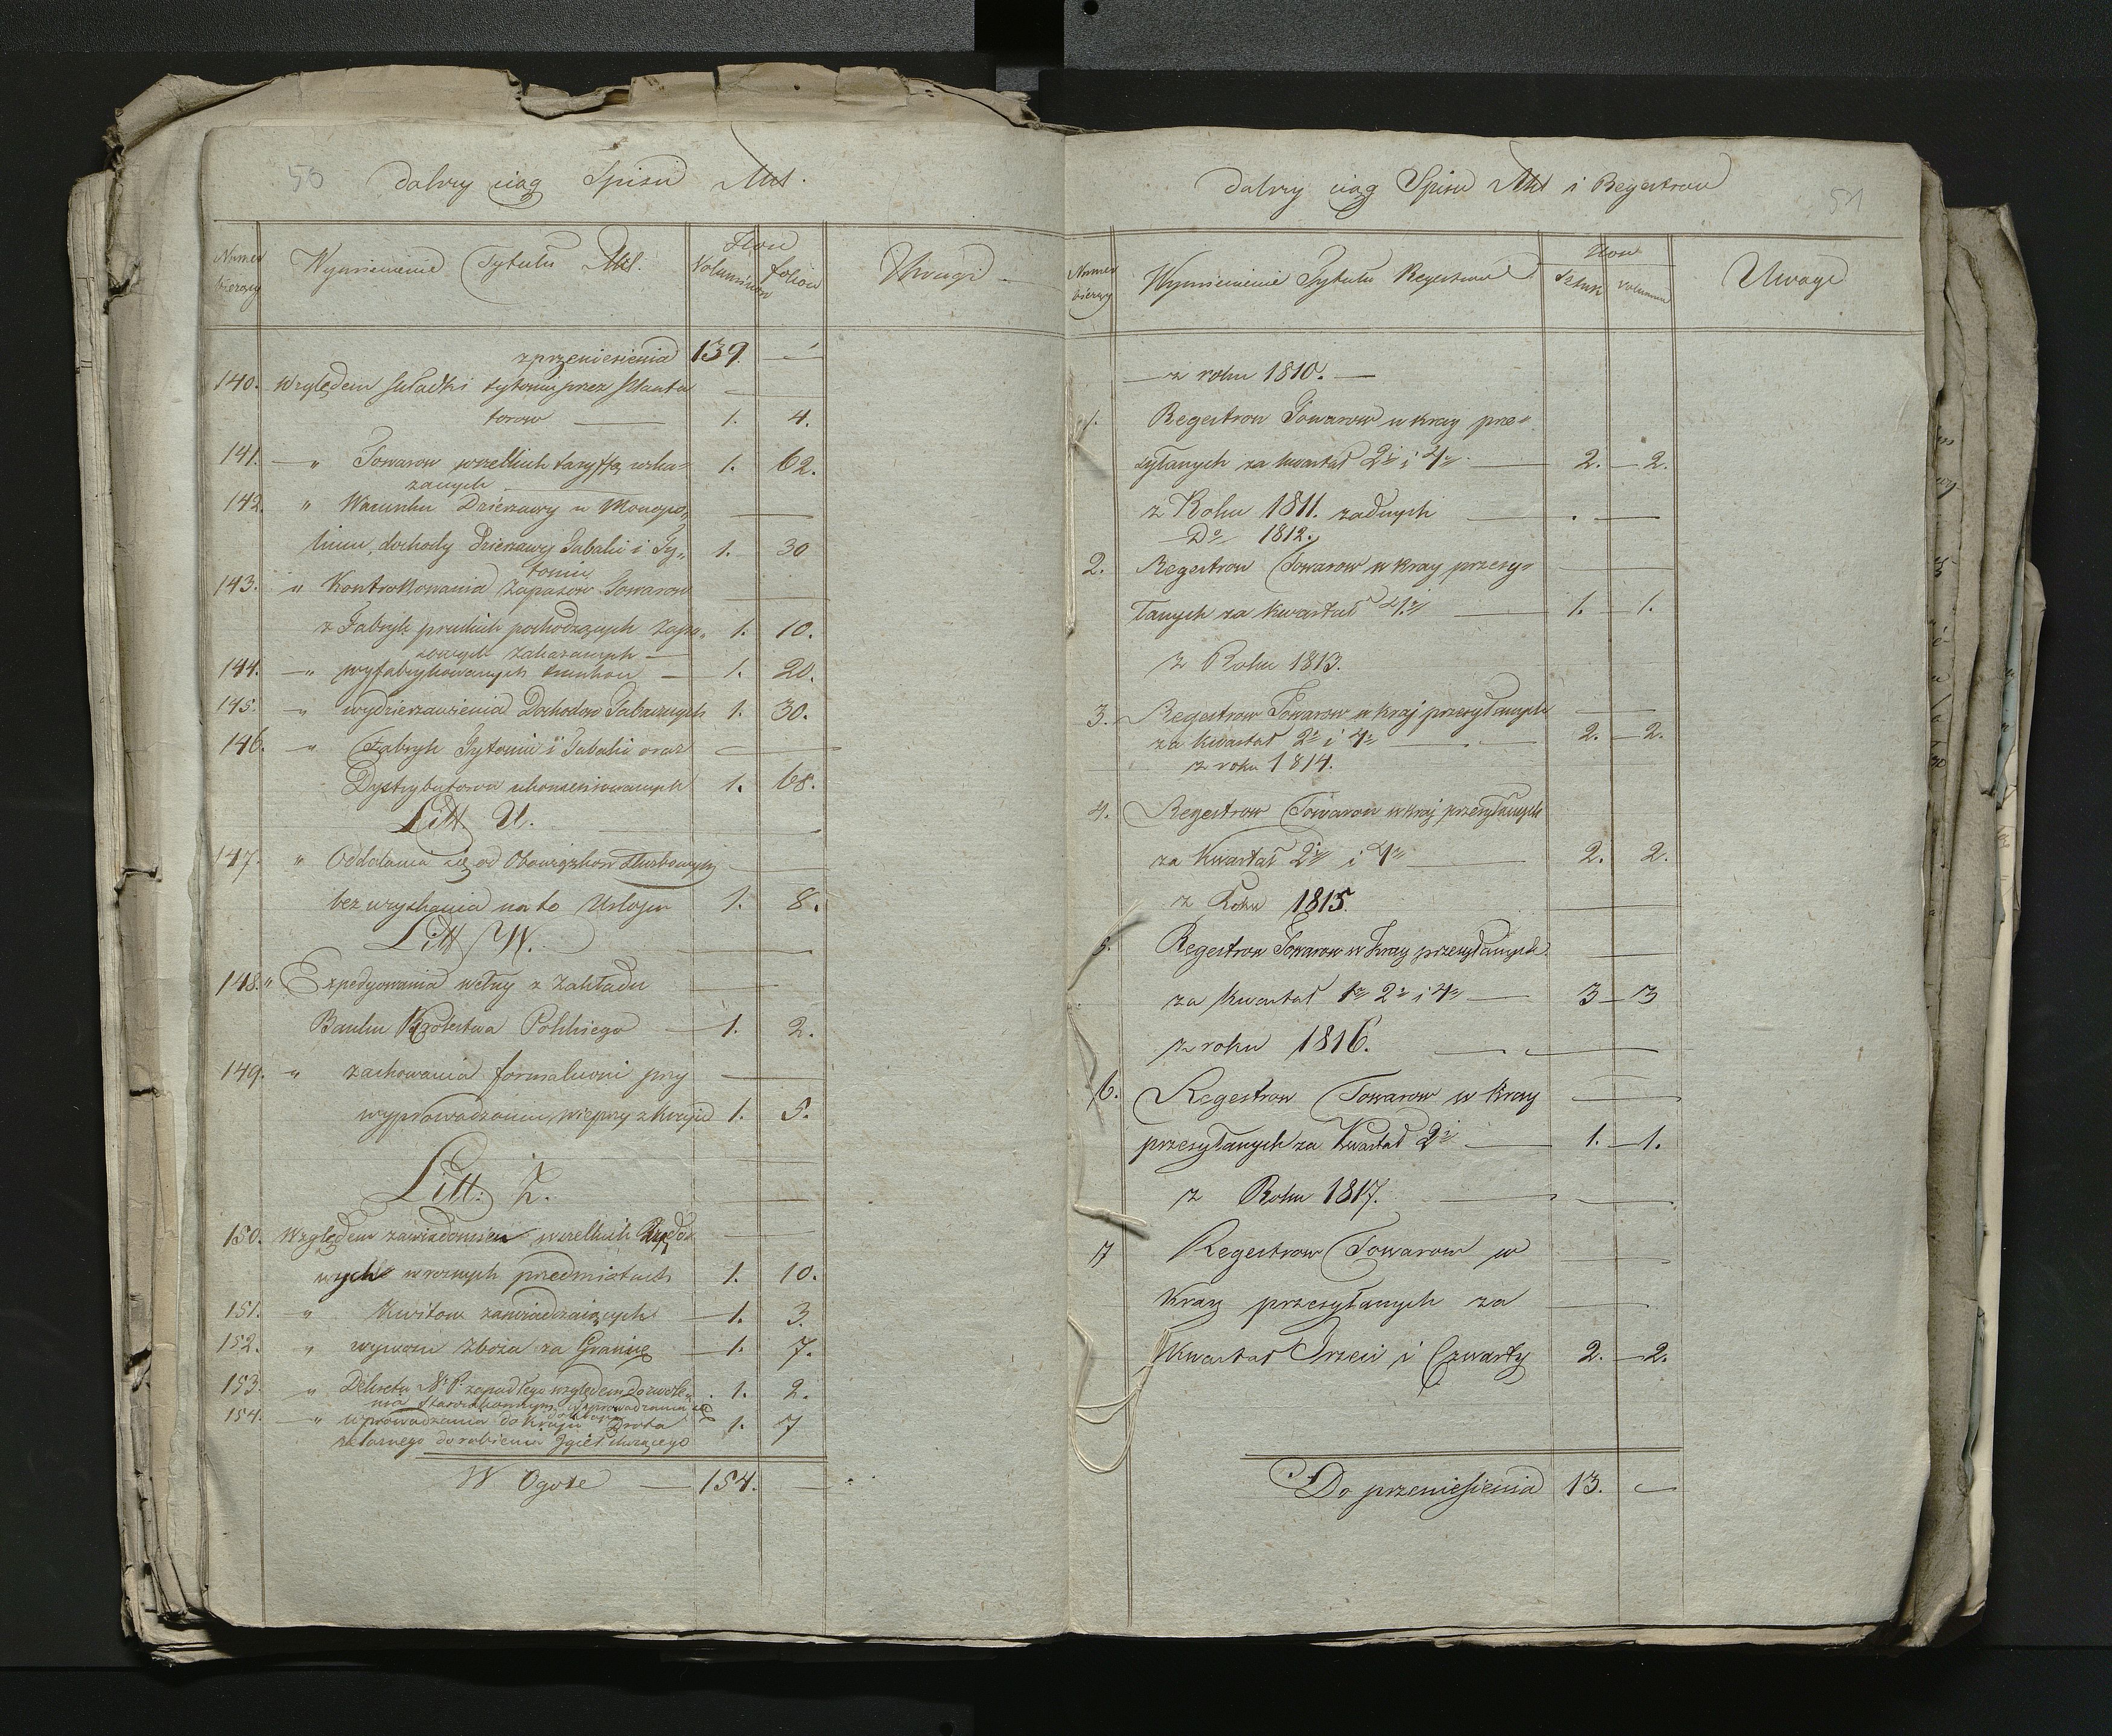 50 dalszy ciąg Spisu Akt.
Numer bieżący
Wymienienie Tytułu Akt.
Ilość
Voluminów
foliow
Uwagi
z przeniesienia 139. —
140. Względem składki tytoniu przez Planta
torow — 1. 4.
141. — " Towarow wszelkich taryffą wska= 1. 62.
zanych
142. " Warunku Dzierzawy u Monopo,
lium, dochody Dzierzawy Tabaki i Ty,, 1. 30
toniu
143. " Kontrollowania zapasow Towarow
z Fabryk pruskich pochodzących 1. 10.
zakazanych —
144. — " wyfabrykowanych — 1. 20.
145. — " wydzierzawienia Dochodow Tabacznych 1. 30.
146. — " Fabryk Tytoniu i Tabaki oraz
Dystrybutorow ukonsensowanych 1. 68.
Litt. U.
147. " Oddalania się od Obowiązkow służbowych
bez uzyskania na to Urlopu 1. 8.
Litt W.
148. " Expedyowania wełny z Zakładu
Banku Krolestwa Polskiego — 1. 2.
149. " zachowania formalności przy
wyprowadzaniu wieprzy z kraju 1. 5.
Litt: Z.
150. Względem zawiadomień wszelkich Rządo
wych w roznych przedmiotach 1. 10.
151. " Kwitow zaswiadczaiących — 1. 3.
152. " wywozu zboża za Granicę — 1. 7.
153. " Dekretu Nr P. zapadłego względem dozwole= 1. 2.
nia Starozakonnym wprowadzania się
154. — " wprowadzania do kraju Drota 1. 7
zelaznego do robienia Igieł służącego
W Ogole — 154. —
dalszy ciąg Spisu Akt i Regestrow 51
Numer bieżący
Wymienienie Tytułu Regestrow
Ilość
Sztuk
Volumin
Uwagi
— z roku 1810. —
1. Regestrow Towarow w kray prze=
syłanych za kwartał 2i i 4y — 2. — 2.
z Roku 1811. żadnych — . —
Do 1812.
2. Regestrow Towarow w kray przesy=
łanych za kwartał 4y — 1. — 1.
z Roku 1813.
3. Regestrow Towarow w kraj przesyłanych
za kwartał 2i i 4y — 2. — 2.
z roku 1814.
4. Regestrow Towarow w kraj przesyłanych
za Kwartał 2i i 4y — 2. 2.
z Roku 1815.
5. Regestrow Towarow w Kray przesyłanych
za kwartał 1y 2i i 4y — 3 — 3
z roku 1816. —
6. Regestrow Towarow w Kray
przesyłanych za Kwartał 2i — 1. — 1.
z Roku 1817. —
7 Regestrow Towarow w
Kray przesyłanych za
Kwartał Trzeci i Czwarty 2. — 2.
Do przeniesienia 13. —